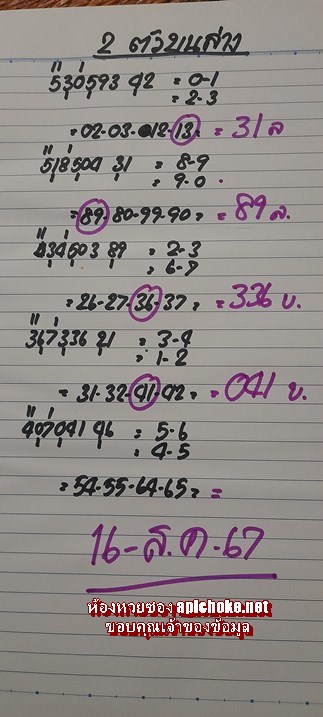 2 ตัวบนล่าง
530593 92 = 0-1
= 2-3
= 02-03-012-13. = 31 ล
518504 31 = 8-9
= 9-0.
= 89-80-99-90, = 89 ล.
434503 89 = 2-3
= 6-7
= 26-27-36-37, = 336 บ.
367336 21 = 3-4
= 1-2
= 31-32-41-42, = 041 บ.
407041 46 = 5-6
= 4-5
= 54-55-64-65, =
16-ส.ค-67
ห้องหวยซอง apichoke.net
ขอบคุณเจ้าของข้อมูล